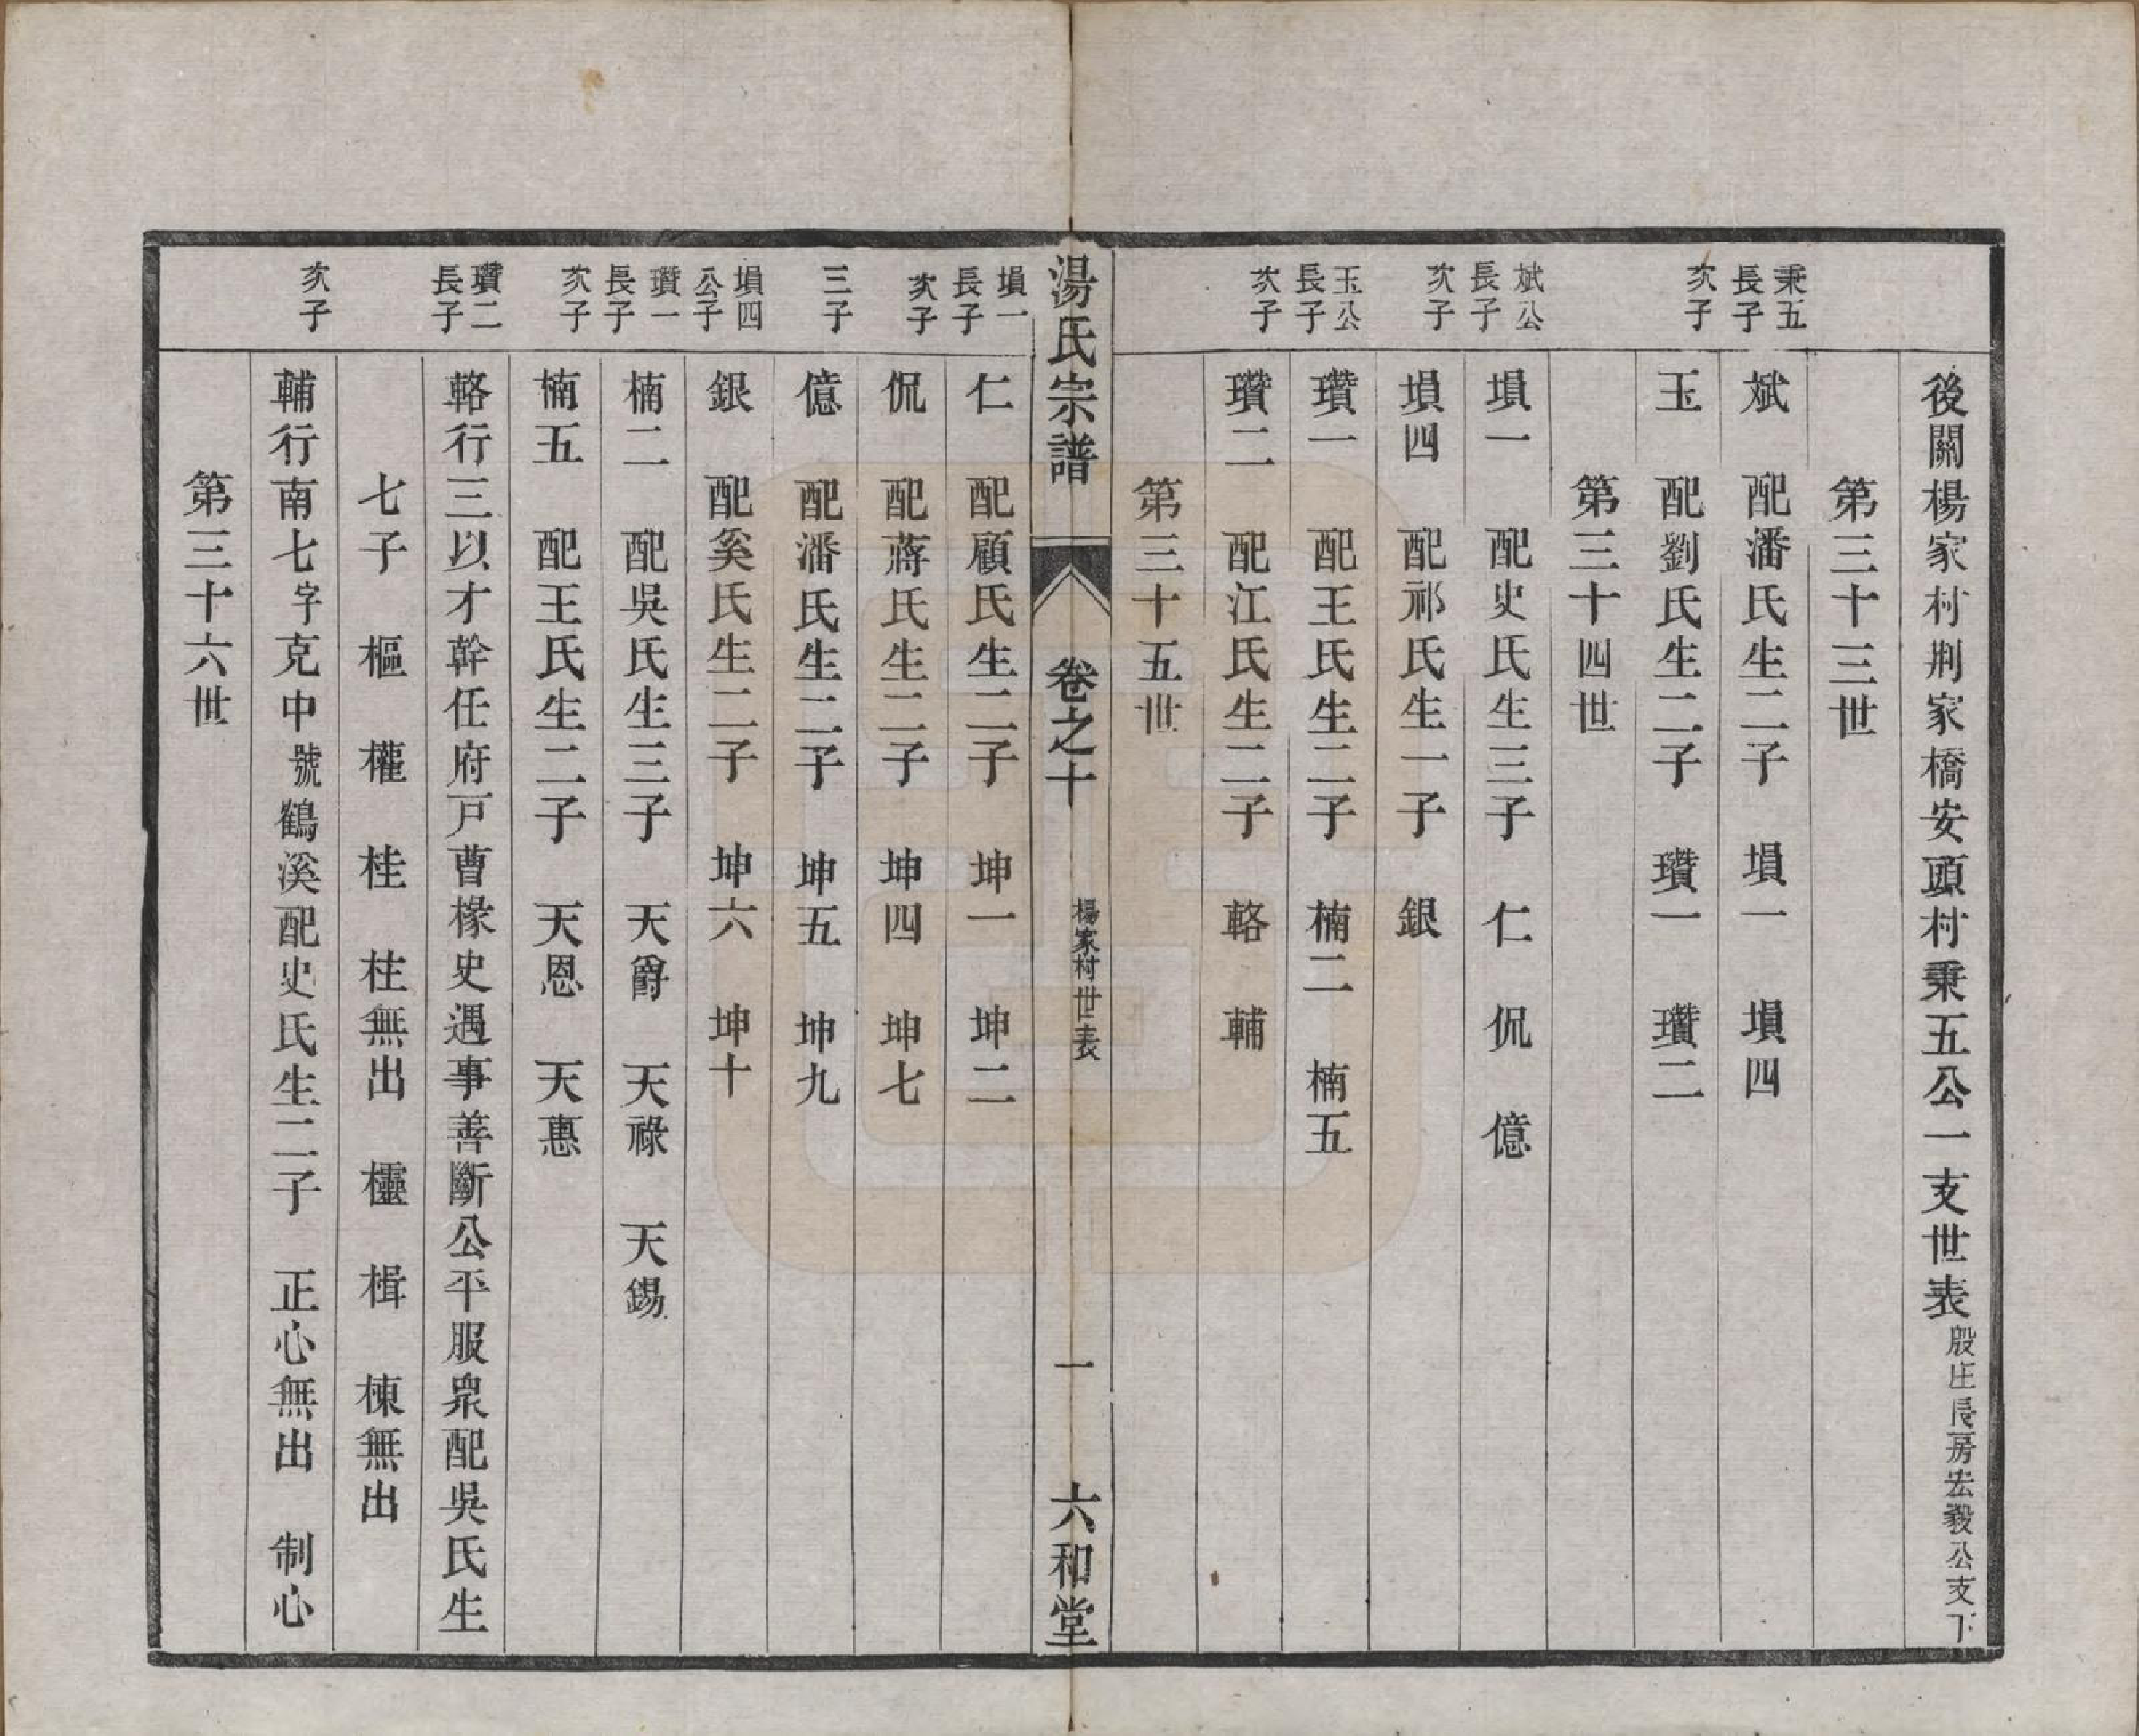 後關楊家村荆家橋安頭村秉五公一支世表殷庄長房宏毅公支下
第三十三世
秉五長子 斌 配潘氏生二子 塤一 塤四
次子 玉 配劉氏生二子 瓚一 瓚二
第三十四世
斌公長子 塤一 配史氏生三子 仁 侃 億
次子 塤四 配祁氏生一子 銀
玉公長子 瓚一 配王氏生二子 楠二 楠五
次子 瓚二 配江氏生二子 輅 輔
第三十五世
湯氏宗譜 卷之十 楊家村世表 一 六和堂
塤一長子 仁 配顧氏生二子 坤一 坤二
次子 侃 配蔣氏生二子 坤四 坤七
三子 億 配潘氏生二子 坤五 坤九
塤四公子 銀 配奚氏生二子 坤六 坤十
瓚一長子 楠二 配吳氏生三子 天爵 天祿 天錫
次子 楠五 配王氏生二子 天恩 天惠
瓚二長子 輅行三以才幹任府戸曹椽史遇事善斷公平服衆配吳氏生
七子 樞 權 桂 柱無出 櫺 楫 棟無出
次子 輔行南七字克中號鶴溪配史氏生二子 正心無出 制心
第三十六世